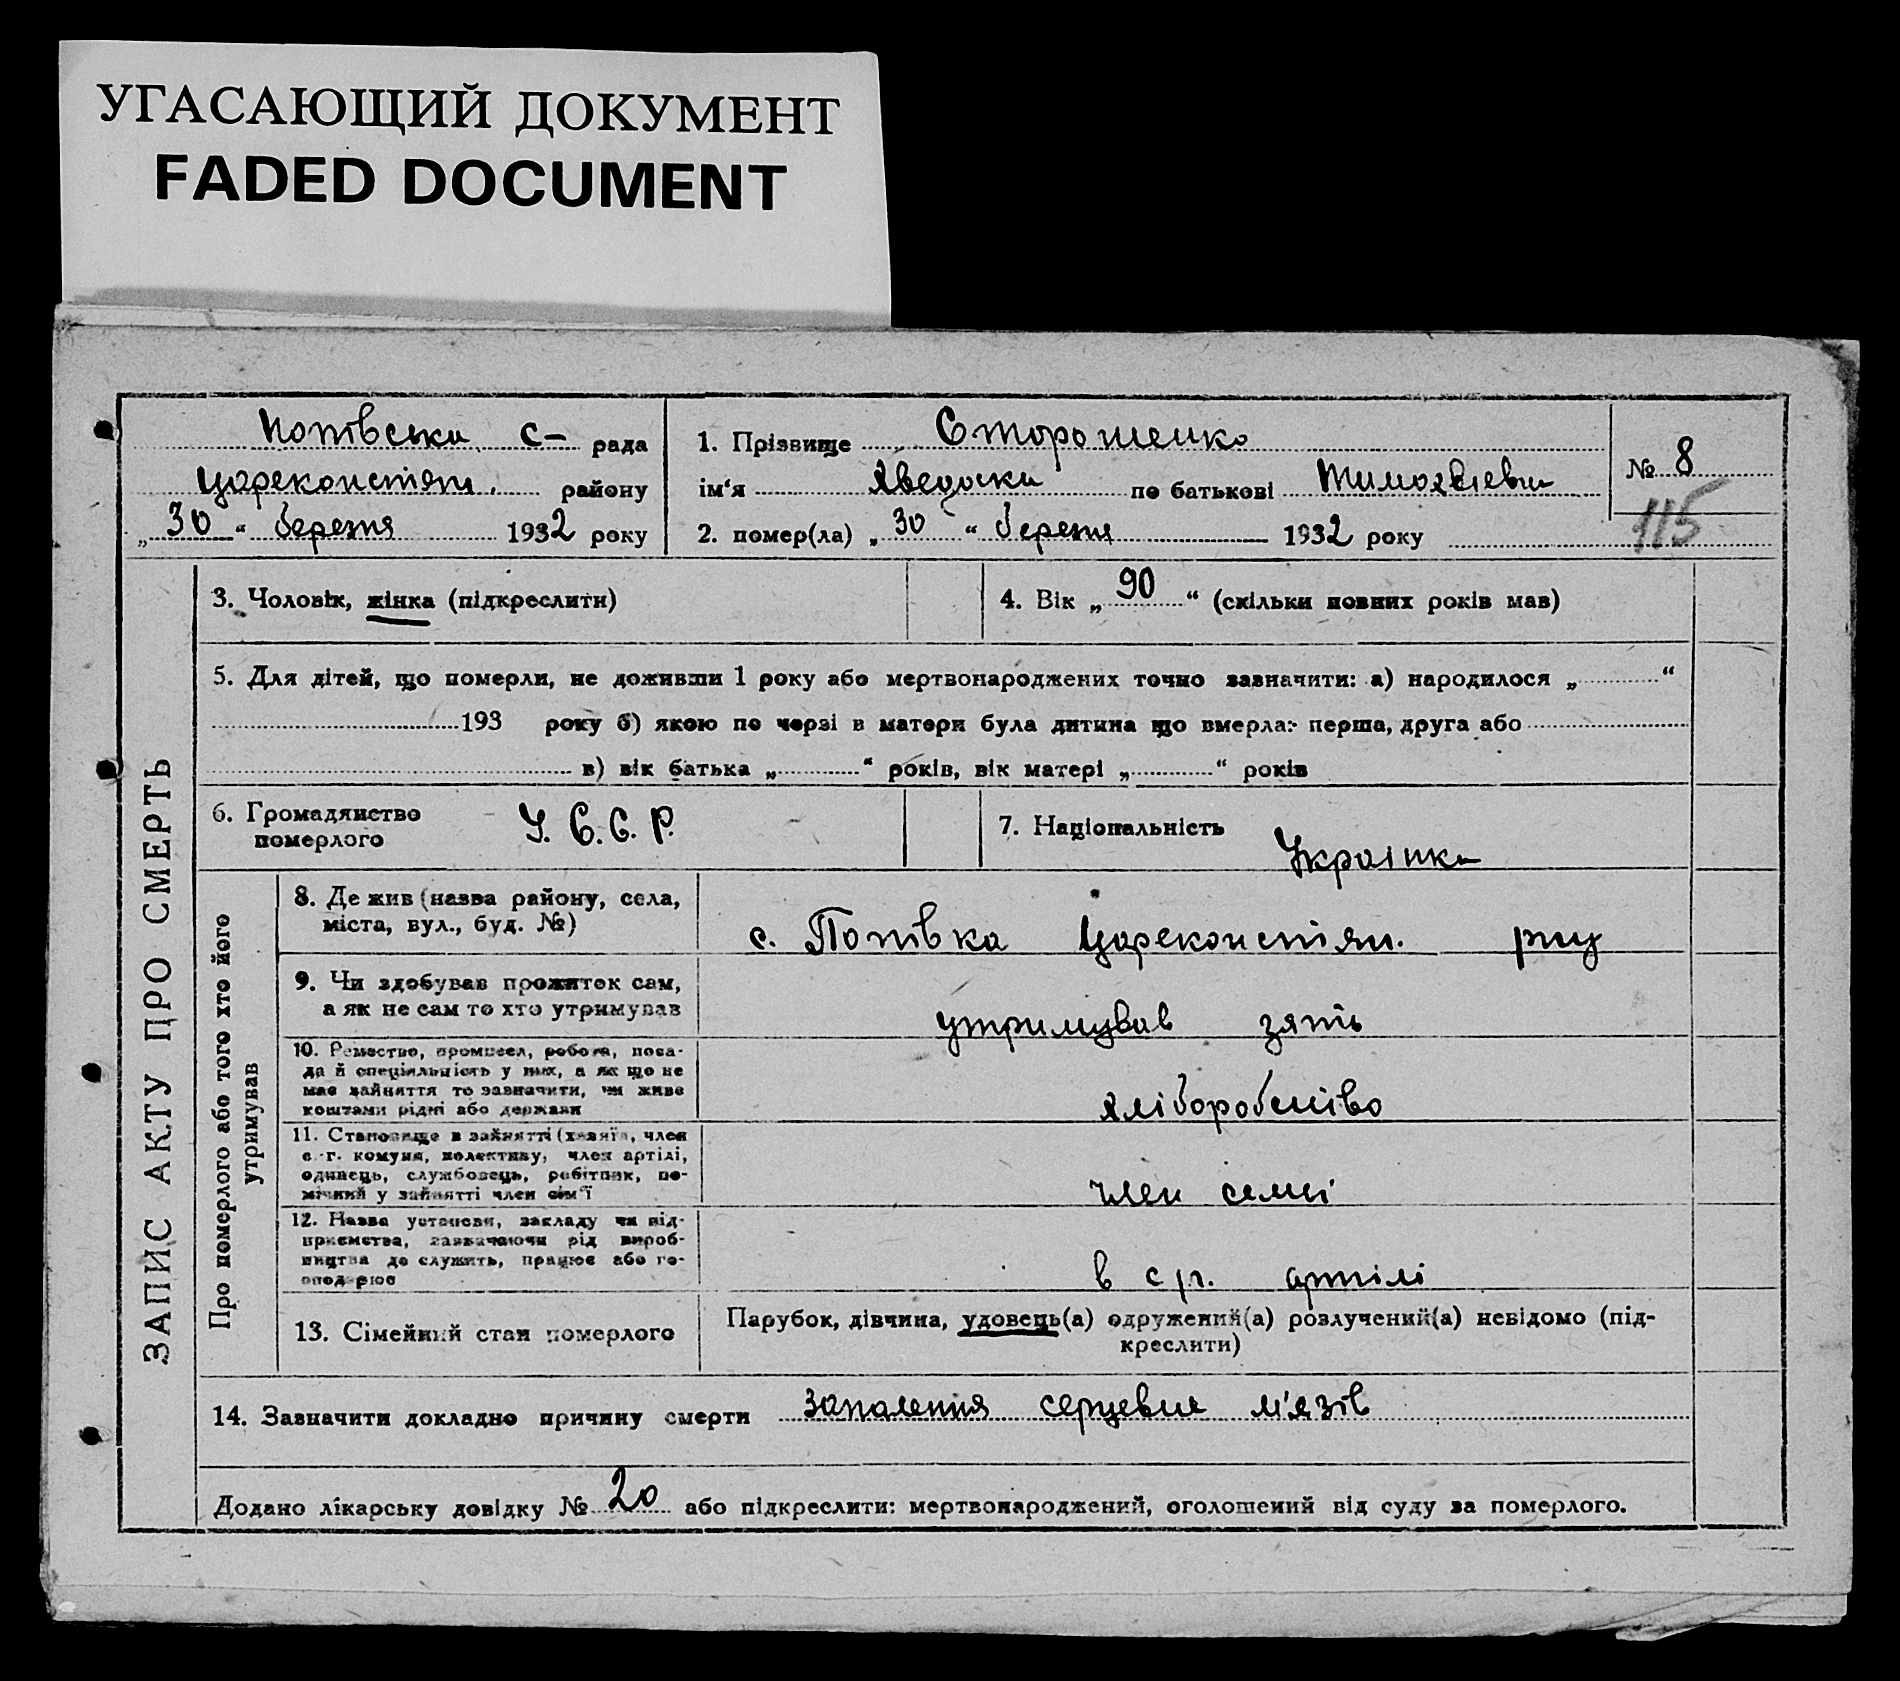 УГАСАЮЩИЙ ДОКУМЕНТ
FADED DOCUMENT
Попівська с– рада
Цареконстян. району
„30“ березня 1932 року
1. Прізвище Сторошенко
ім'я Явдоски по батькові
2. помер(ла) „30“ березня 1932 року
№ 8
115
ЗАПИС АКТУ ПРО СМЕРТЬ
3. Чоловік, жінка (підкреслити)
4. Вік „90“ (скільки повних років мав)
5. Для дітей, що померли, не доживши 1 року або мертвонароджених точно зазначити: а) народилося „ “
193 року б) якою по черзі в матери була дитина що вмерла: перша, друга або
в) вік батька „ “ років, вік матері „ “ років
6. Громадянство
померлого
У. С. С. Р.
7. Національність
Українка
Про померлого або того хто його
утримував
8. Де жив (назва району, села,
міста, вул., буд. №)
с. Попівка Цареконстян. рну
9. Чи здобував прожиток сам,
а як не сам то хто утримував
утримував зять
10. Ремество, промисел, робота, поса-
да й спеціяльність у них, а як що не
має зайняття то зазначити, чи живе
коштами рідні або держави
хліборобство
11. Становище в зайнятті (хазяїн, член
с.-г. комуни, колективу, член артілі,
одинець, службовець, робітник, по-
мічний у зайнятті член сім'ї
член семьі
12. Назва установи, закладу чи під-
приємства, зазначаючи рід вироб-
ництва де служить, працює або го-
сподарює
в с/г. артілі
13. Сімейний стан померлого
Парубок, дівчина, удовець(а) одружений(а) розлучений(а) невідомо (під-
креслити)
14. Зазначити докладно причину смерти запалення серцевих м'язів
Додано лікарську довідку № 20 або підкреслити: мертвонароджений, оголошений від суду за померлого.